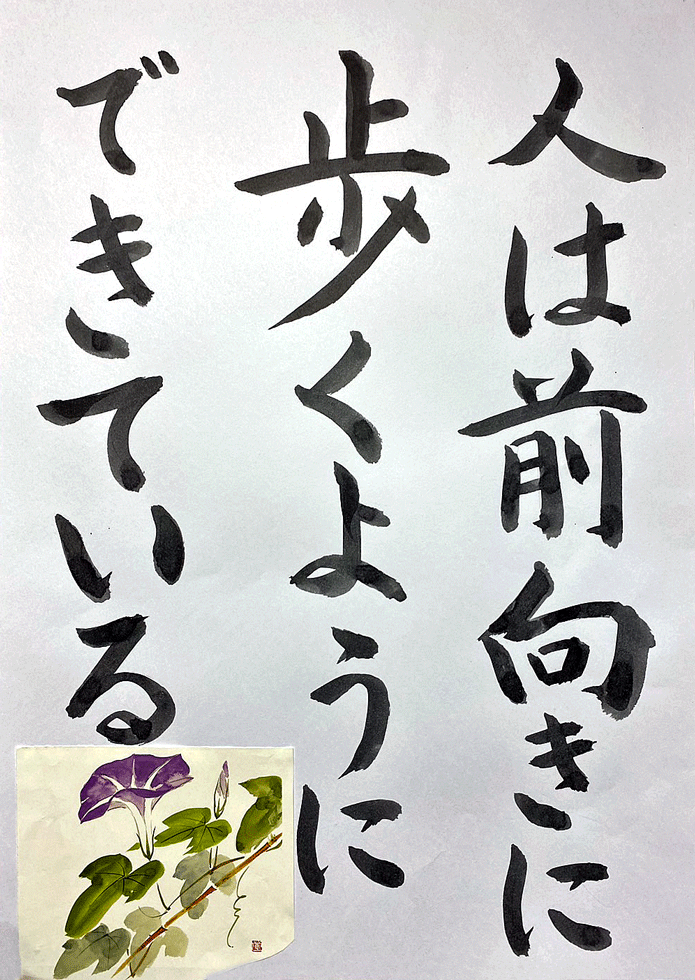 人は前向きに
歩くように
できている